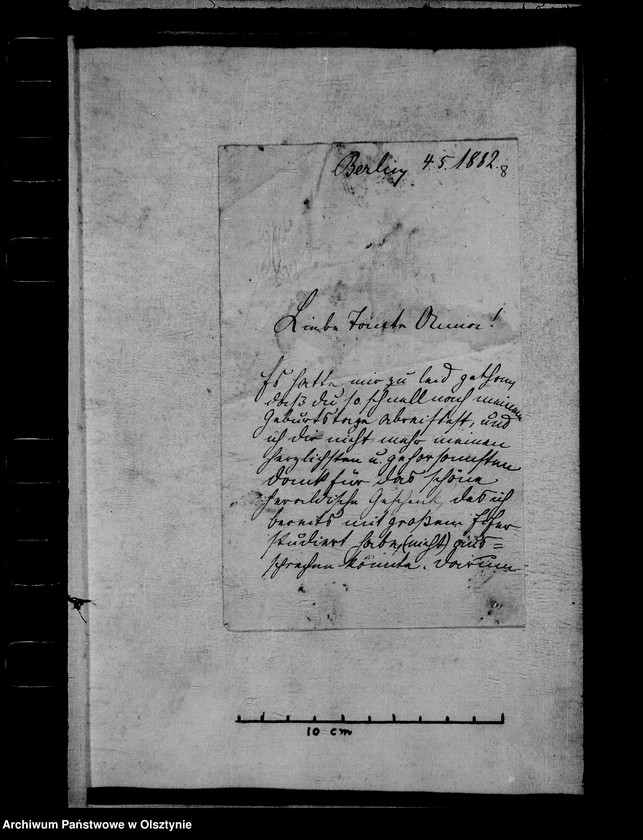 Berlin 4 5. 1882.
8
Liebe Tante Anna!
Es hatte mir zu leid gethan
daß du so schnell nach meinem
Geburtstage abreistest, und
ich dir nicht mehr meinen
herzlichsten u. gehorsamsten
Dank für das schöne
heraldische Geschenk, das ich
bereits mit großem Eifer
studiert habe, (nicht) aus=
sprechen könnte. Darum
10 cm
Archiwum Państwowe w Olsztynie